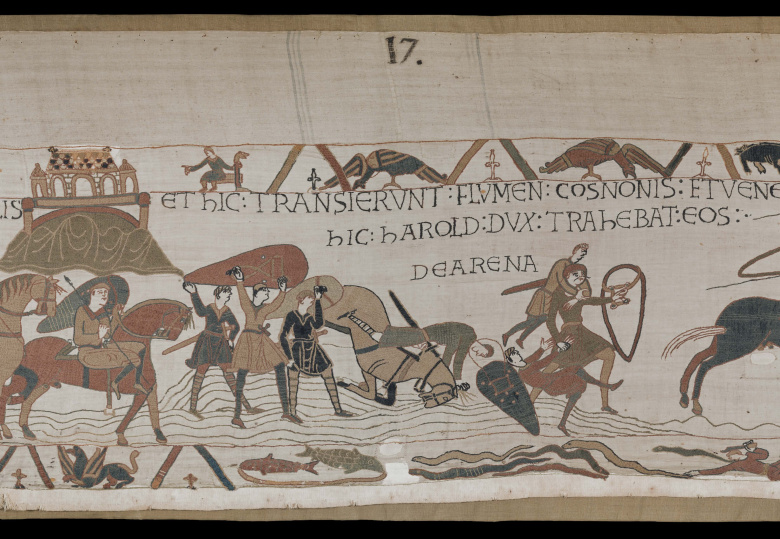 17.
IS ET hIC: TRANSIERVNT: FLVMEN: COSNONIS: ETVENE
hIC: hAROLD: DVX: TRAhEBAT: EOS:
DEARENA